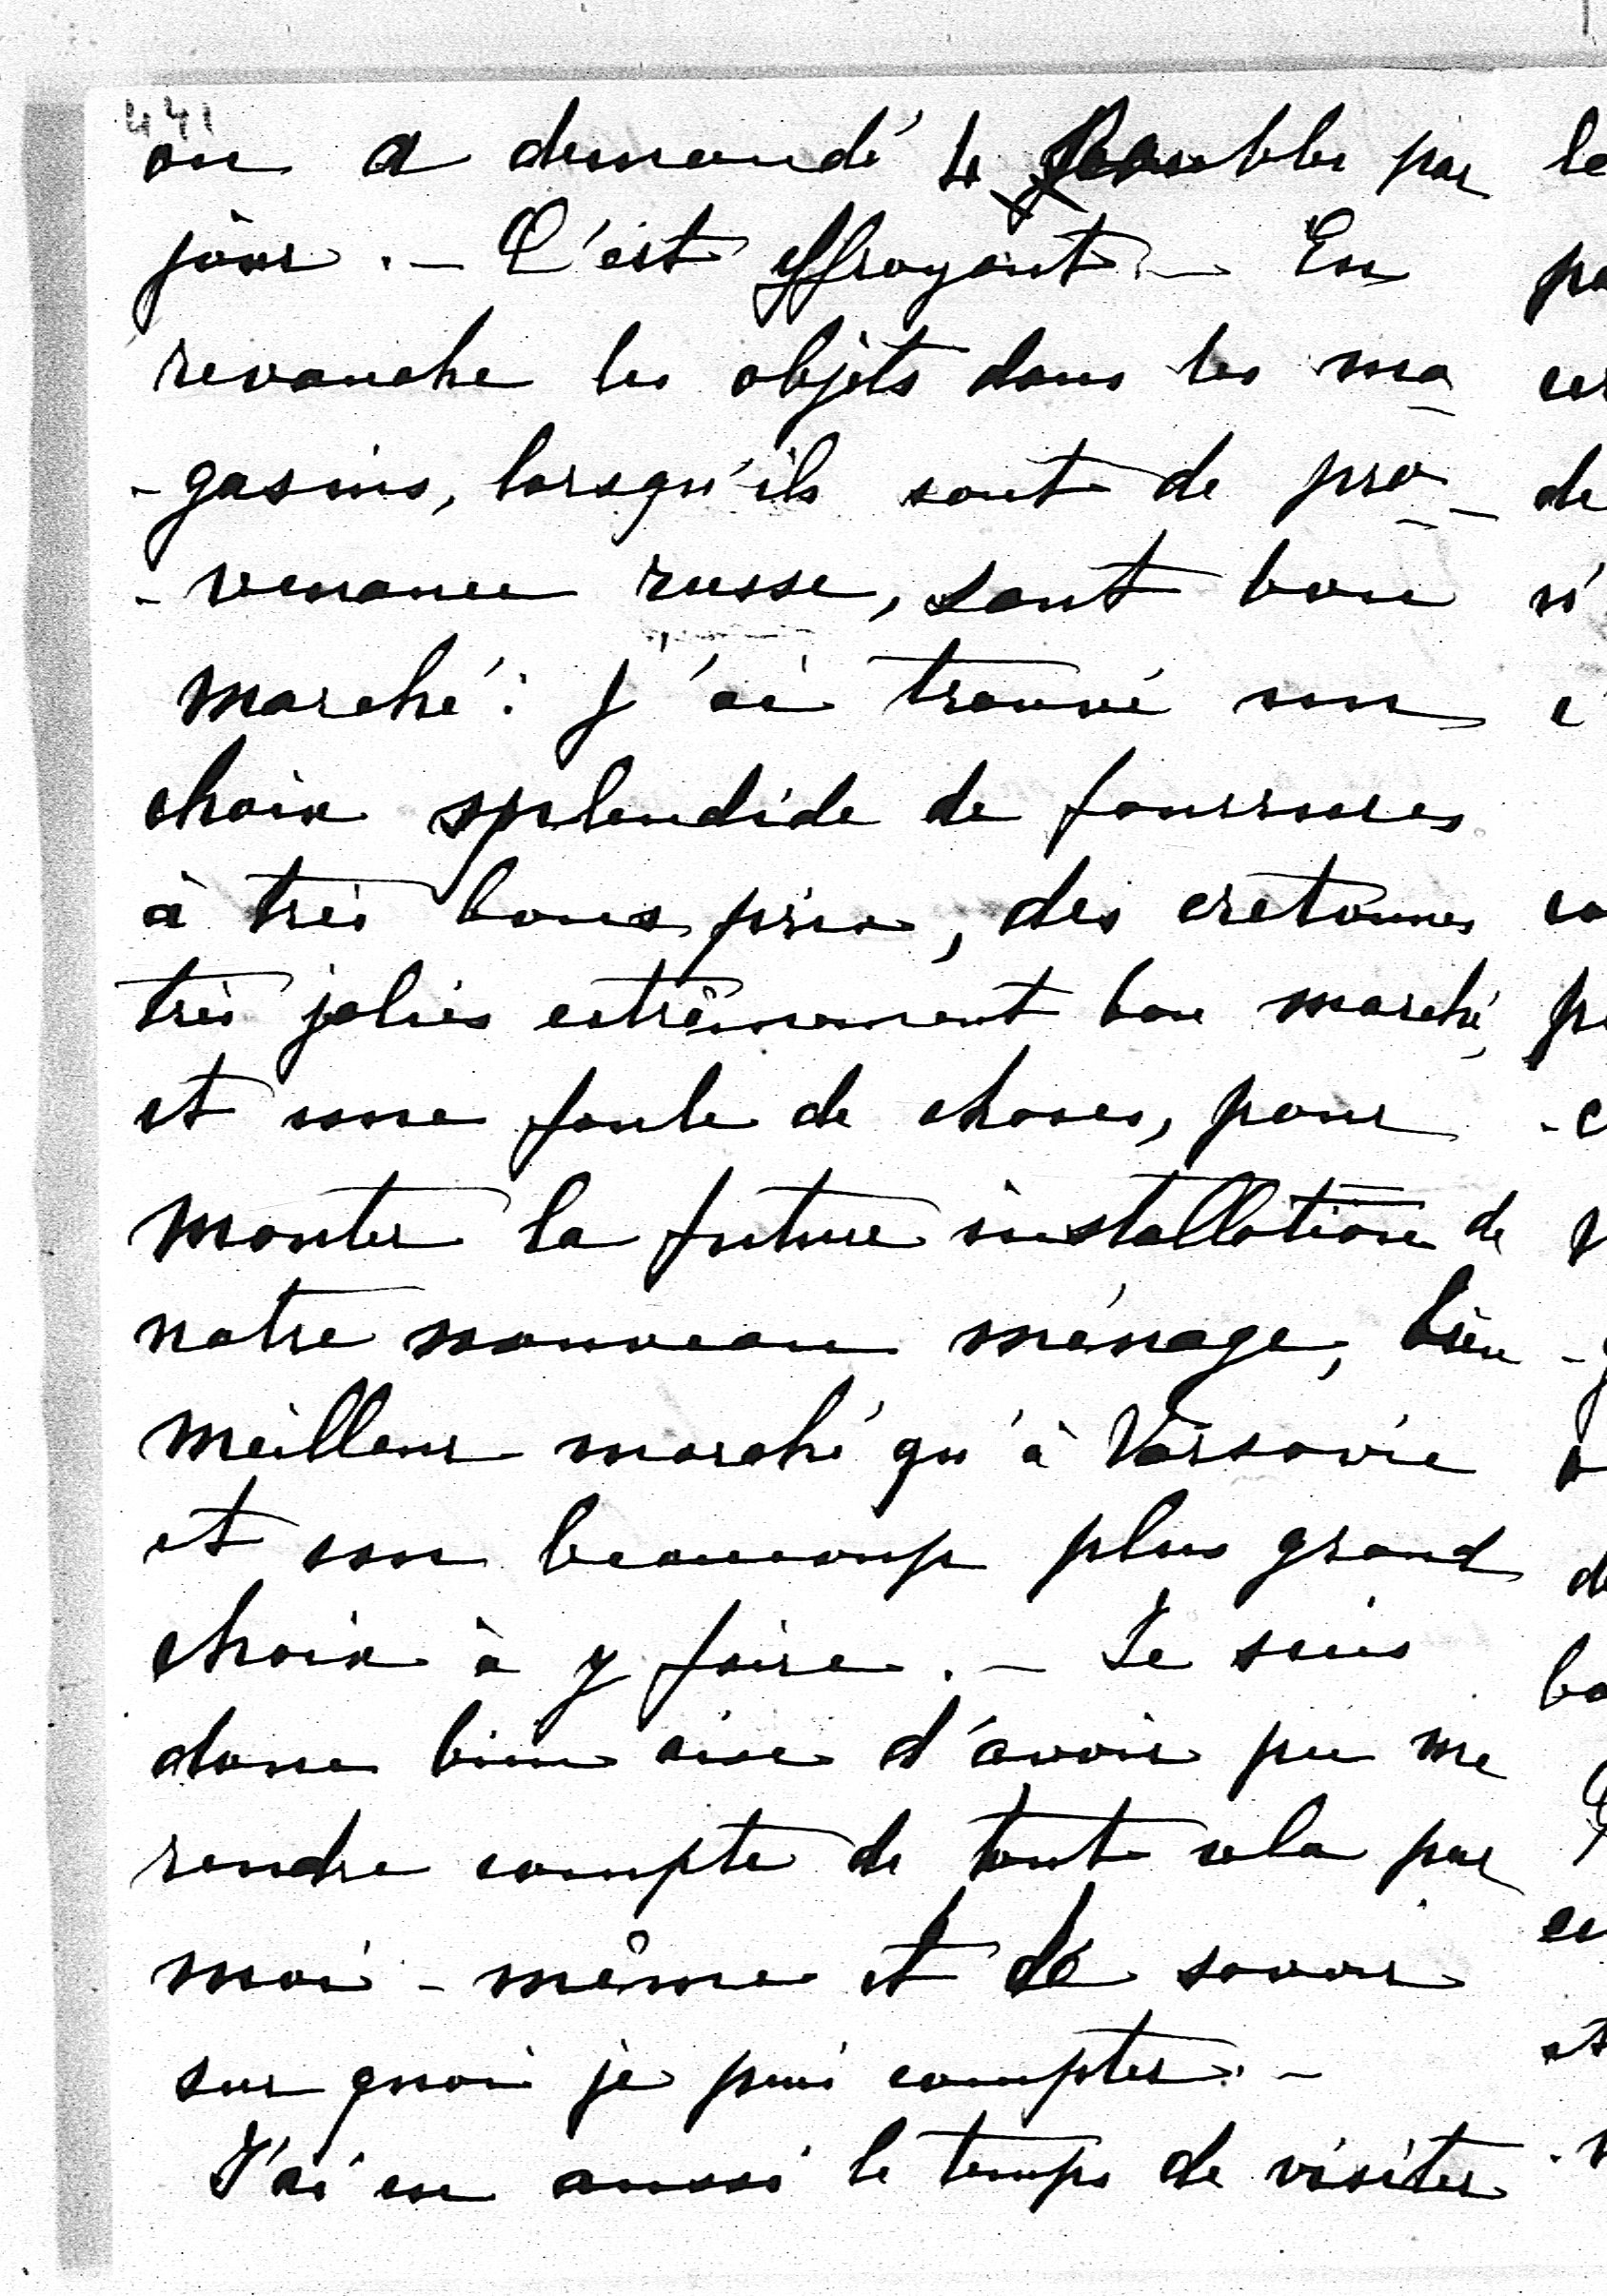 441
on a demandé 4 roubles par
jour. — C'est effroyant — En
revanche les objets dans les ma
- gasins, lorsqu'ils sont de pro -
- venance russe, sont bon
marché: j'ai trouvé un
choix splendide de fourrures
à très bons prix, des cretonnes
très jolies extrêmement bon marché,
et une foule de choses, pour
monter la future installation de
notre nouveau ménage, bien
meilleur marché qu'à Varsovie
et un beaucoup plus grand
choix à y faire. — Je suis
donc bien aise d'avoir pu me
rendre compte de tout cela par
moi-même et de savoir
sur quoi je puis compter. -
J'ai eu aussi le temps de visiter